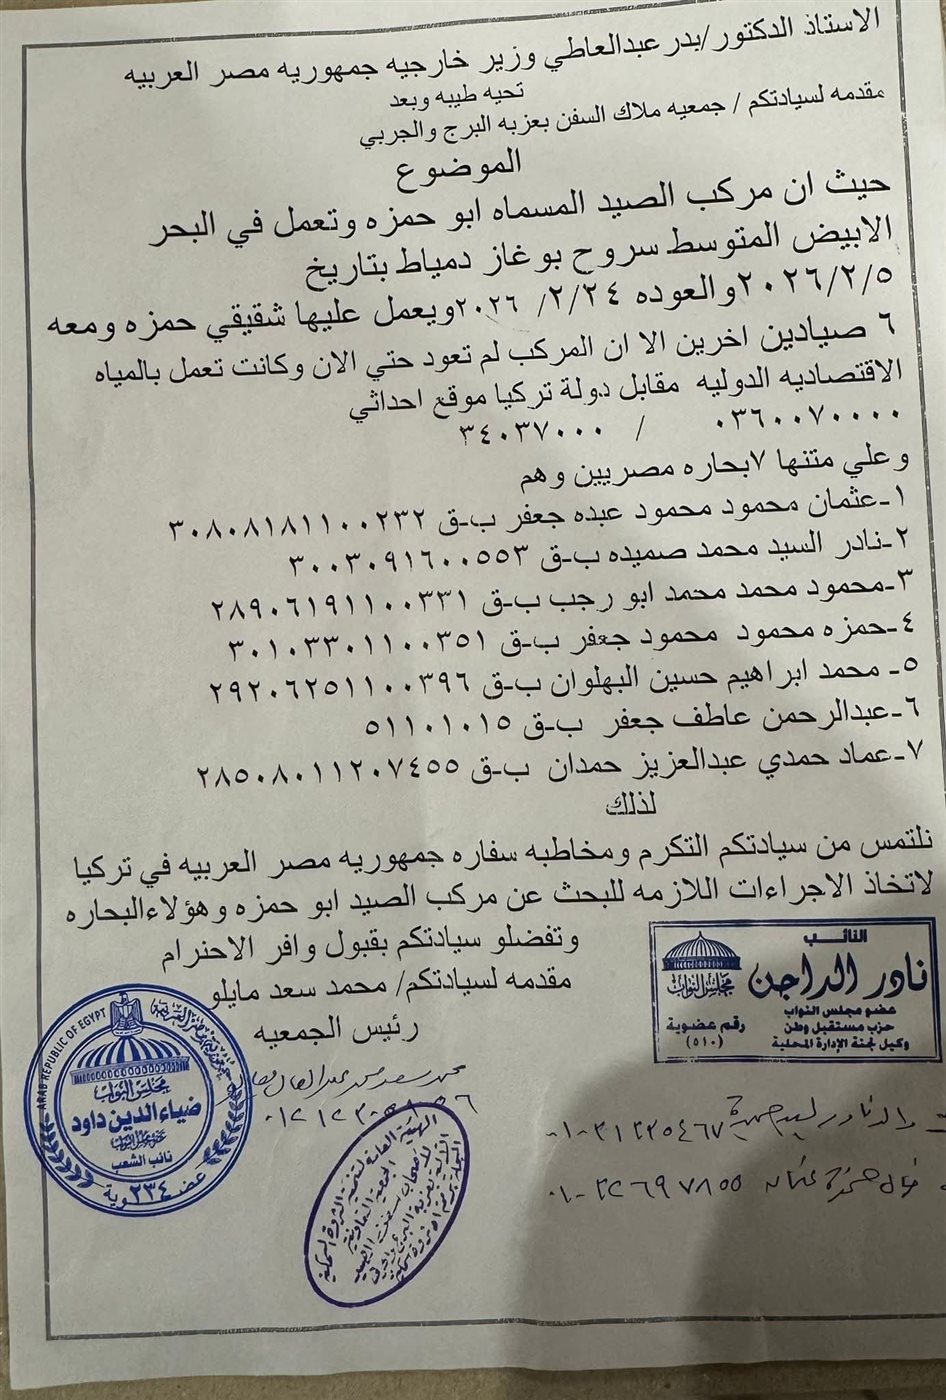 الاستاذ الدكتور/بدر عبدالعاطي وزير خارجيه جمهوريه مصر العربيه
تحيه طيبه وبعد
مقدمه لسيادتكم / جمعيه ملاك السفن بعزبه البرج والجربي
الموضوع
حيث ان مركب الصيد المسماه ابو حمزه وتعمل في البحر
الابيض المتوسط سروح بوغاز دمياط بتاريخ
٢٠٢٦/٢/٥والعوده ٢٠٢٦ /٢/٢٤ويعمل عليها شقيقي حمزه ومعه
٦ صيادين اخرين الا ان المركب لم تعود حتي الان وكانت تعمل بالمياه
الاقتصاديه الدوليه مقابل دولة تركيا موقع احداثي
٠٣٦٠٠٧٠٠٠٠ / ٣٤٠٣٧٠٠٠
وعلي متنها ٧بحاره مصريين وهم
١-عثمان محمود محمود عبده جعفر ب-ق ٣٠٨٠٨١٨١١٠٠٢٣٢
٢-نادر السيد محمد صميده ب-ق ٣٠٠٣٠٩١٦٠٠٥٥٣
٣-محمود محمد محمد ابو رجب ب-ق ٢٨٩٠٦١٩١١٠٠٣٣١
٤-حمزه محمود محمود جعفر ب-ق ٣٠١٠٣٣٠١١٠٠٣٥١
٥- محمد ابراهيم حسين البهلوان ب-ق ٢٩٢٠٦٢٥١١٠٠٣٩٦
٦-عبدالرحمن عاطف جعفر ب-ق ٥١١٠١٠١٥
٧-عماد حمدي عبدالعزيز حمدان ب-ق ٢٨٥٠٨٠١١٢٠٧٤٥٥
لذلك
نلتمس من سيادتكم التكرم ومخاطبه سفاره جمهوريه مصر العربيه في تركيا
لاتخاذ الاجراءات اللازمه للبحث عن مركب الصيد ابو حمزه وهؤلاءالبحاره
وتفضلو سيادتكم بقبول وافر الاحترام
مقدمه لسيادتكم/ محمد سعد مايلو
رئيس الجمعيه
النائب
نادر الداجن
مجلس النواب
عضو مجلس النواب
حزب مستقبل وطن
وكيل لجنة الإدارة المحلية
رقم عضوية
(٥١٠)
ARAB REPUBLIC OF EGYPT
جمهورية مصر العربية
مجلس النواب
ضياء الدين داود
عضو مجلس النواب
نائب الشعب
عضوية ٢٣٤
محمد سعد محمد عبدالعال
والد نادر السيد صميدة
الهيئة العامة لتنمية الثروة السمكية
الجمعية التعاونية